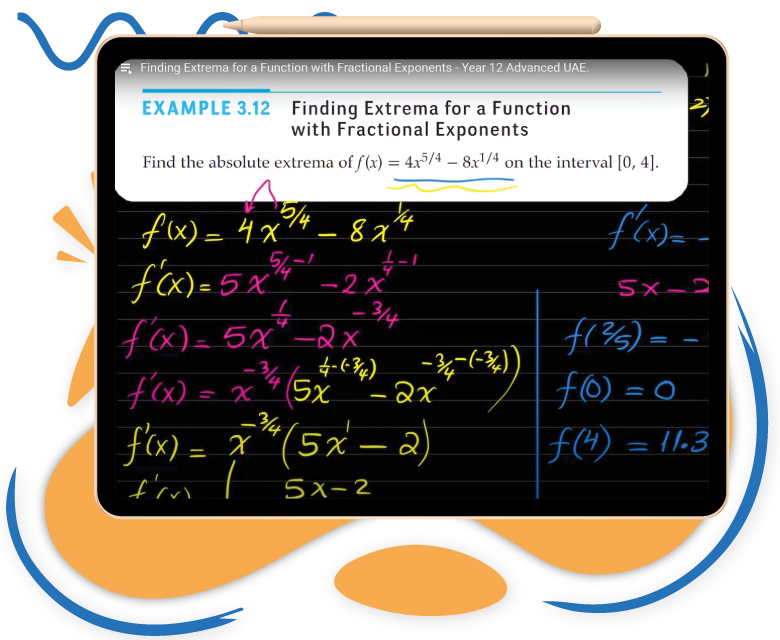 Finding Extrema for a Function with Fractional Exponents - Year 12 Advanced UAE.
EXAMPLE 3.12 Finding Extrema for a Function
with Fractional Exponents
Find the absolute extrema of f(x) = 4x^5/4 − 8x^1/4 on the interval [0, 4].
f(x) = 4x^5/4 − 8x^1/4
f'(x) = 5x^5/4-1 − 2x^1/4-1
f'(x) = 5x^1/4 − 2x^-3/4
f'(x) = x^-3/4 (5x^1/4-(-3/4) − 2x^-3/4-(-3/4))
f'(x) = x^-3/4 (5x^1 − 2)
f'(x) 5x-2
f'(x) = -
5x-2
f(2/5) = -
f(0) = 0
f(4) = 11.3